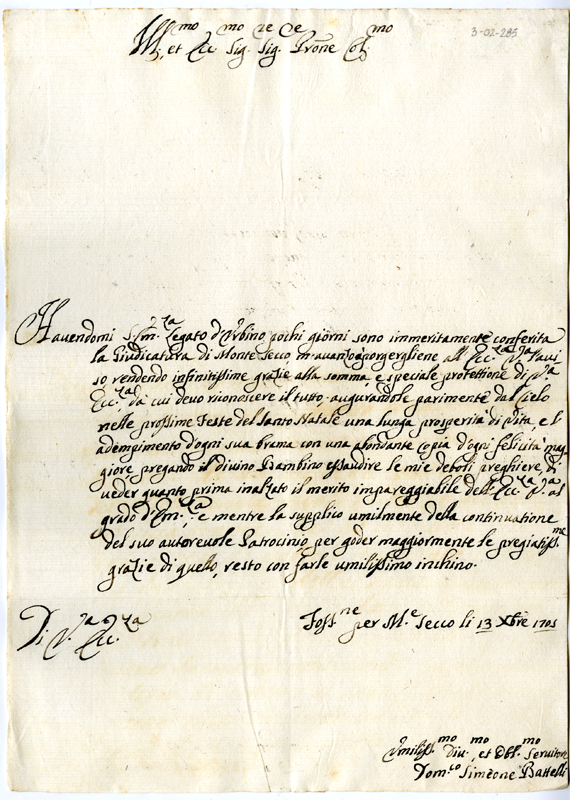 3-02-285
Ill.mo, et Ecc.mo Sig.re Sig.re Prōne Col.mo
Havendomi l'Em.za Legato d'Urbino pochi giorni sono immeritamente conferita
la Giudicatura di Monte Secco, m'avanzo à porgergliene all'Ecc.za V.ra l'avi
so rendendo infinitissime grazie alla somma, e speciale protettione di V.ra
Ecc.za da cui devo riconoscere il tutto. augurandole parimente dal Cielo
nelle prossime Feste del Santo Natale una lunga prosperità di vita, e l
adempimento d'ogni sua brama con una abondante copia d'ogni felicità mag
giore pregando il divino Bambino essaudire le mie deboli preghiere, di
veder quanto prima inalzato il merito impareggiabile dell'Ecc.za V.ra al
grado d'Em.za: e mentre la supplico umilmente della continuatione
del suo autorevole Patrocinio, per goder maggiormente le pregiatiss.me
grazie di quello, resto con farle umilissimo inchino.
Di V.ra Ecc.za
Foss.ne per M.e Secco li 13 Xbre 1701
Umiliss.mo Div.mo, et Obl.mo Servitore
Dom.co Simeone Battelli